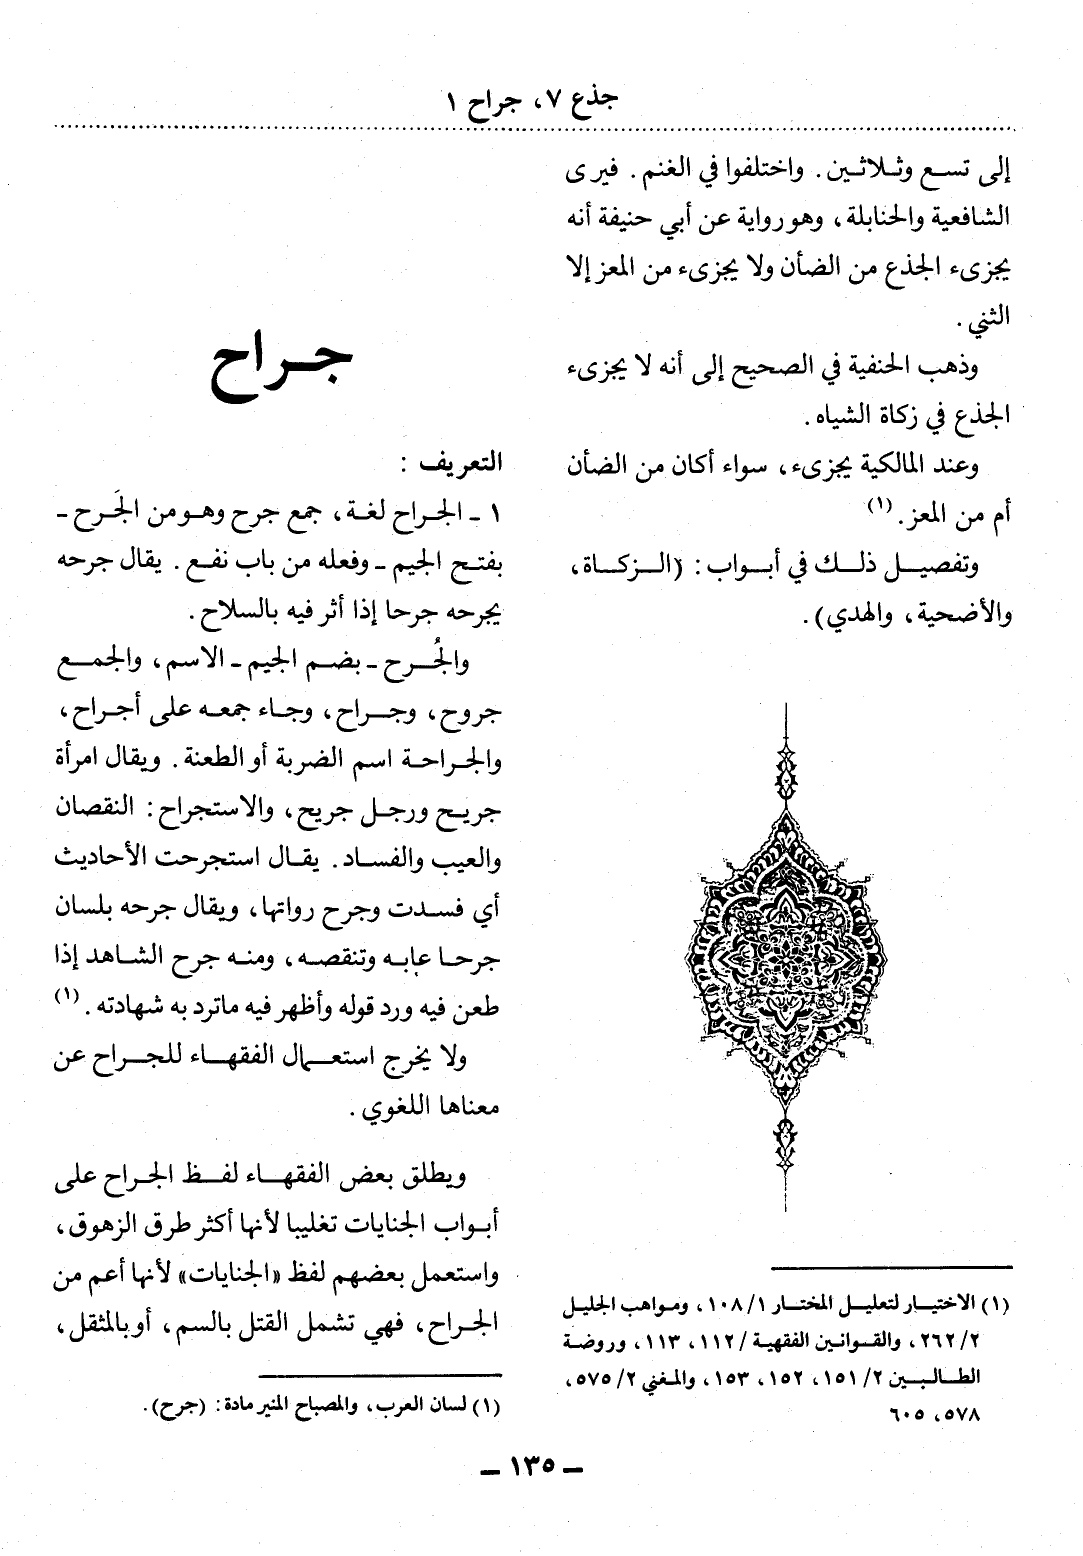 جذع ٧، جراح ١
إلى تسع وثلاثين. واختلفوا في الغنم. فيرى
الشافعية والحنابلة، وهو رواية عن أبي حنيفة أنه
يجزىء الجذع من الضأن ولا يجزىء من المعز إلا
الثني.
وذهب الحنفية في الصحيح إلى أنه لا يجزىء
الجذع في زكاة الشياه.
وعند المالكية يجزىء، سواء أكان من الضأن
أم من المعز. (١)
وتفصيل ذلك في أبواب: (الزكاة،
والأضحية، والهدي).
(١) الاختيار لتعليل المختار ١/ ١٠٨، ومواهب الجليل
٢/ ٢٦٢، والقوانين الفقهية / ١١٢، ١١٣، وروضة
الطالبين ٢/ ١٥١، ١٥٢، ١٥٣، والمغني ٢/ ٥٧٥،
٥٧٨، ٦٠٥
جراح
التعريف :
١ ـ الجراح لغة، جمع جرح وهو من الجَرح ـ
بفتح الجيم ـ وفعله من باب نفع. يقال جرحه
يجرحه جرحا إذا أثر فيه بالسلاح.
والجُرح ـ بضم الجيم ـ الاسم، والجمع
جروح، وجراح، وجاء جمعه على أجراح،
والجراحة اسم الضربة أو الطعنة. ويقال امرأة
جريح ورجل جريح، والاستجراح: النقصان
والعيب والفساد. يقال استجرحت الأحاديث
أي فسدت وجرح رواتها، ويقال جرحه بلسان
جرحا عابه وتنقصه، ومنه جرح الشاهد إذا
طعن فيه ورد قوله وأظهر فيه ماترد به شهادته. (١)
ولا يخرج استعمال الفقهاء للجراح عن
معناها اللغوي.
ويطلق بعض الفقهاء لفظ الجراح على
أبواب الجنايات تغليبا لأنها أكثر طرق الزهوق،
واستعمل بعضهم لفظ «الجنايات» لأنها أعم من
الجراح، فهي تشمل القتل بالسم، أو بالمثقل،
(١) لسان العرب، والمصباح المنير مادة: (جرح).
ـ ١٣٥ ـ